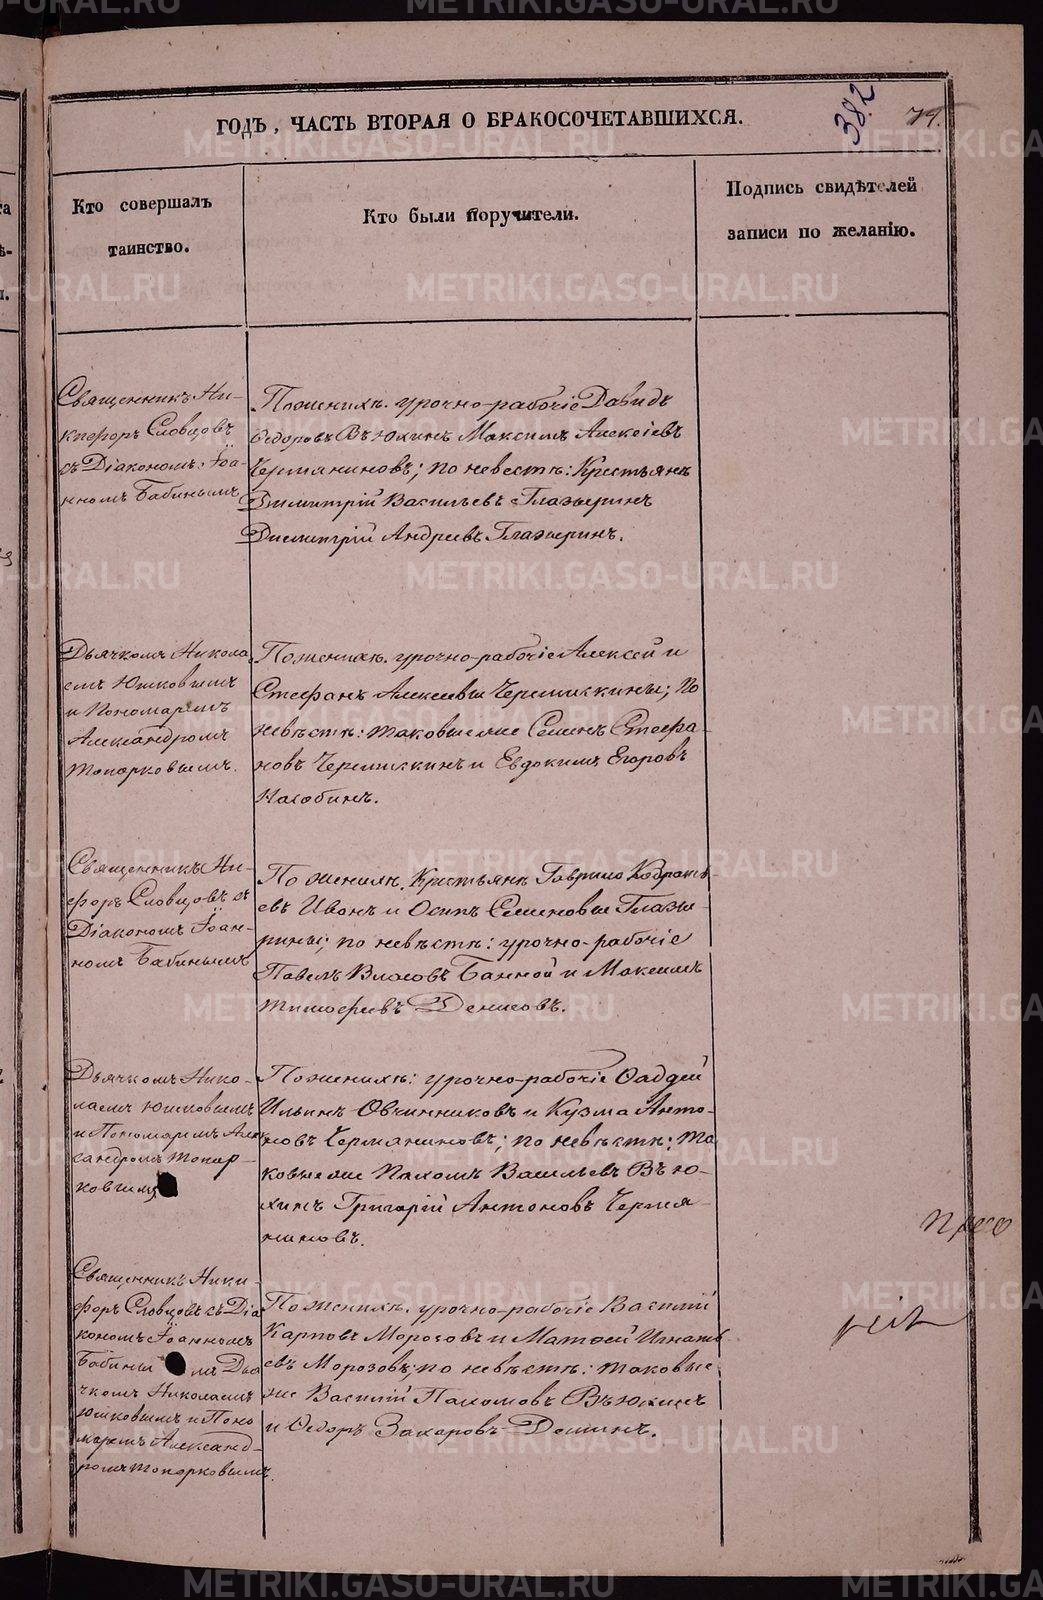 ГОДЪ, ЧАСТЬ ВТОРАЯ О БРАКОСОЧЕТАВШИХСЯ.
382
74.
Кто совершалъ
таинство.
Кто были поручители.
Подпись свидѣтелей
записи по желанію.
Священникъ Ни-
кифоръ Словцовъ
съ Діакономъ Іоа-
нномъ Бабинымъ
По женихѣ. урочно-рабочіе Давидъ
Ѳедоровъ Вѣюхинъ Максимъ Алексіевъ
Чермяниновъ; по невестѣ: Крестьянъ
Димитрій Васильевъ Глазыринъ
Димитрій Андреевъ Глазыринъ.
Дьячкомъ Никола
емъ Юшковымъ
и Пономаремъ
Александромъ
Топорковымъ.
По женихѣ. урочно-рабочіе Алексѣй и
Стефанъ Алексѣевы Черемискины; по
невѣстѣ: таковые же Семенъ Стефа-
новъ Черемискинъ и Евдокимъ Егоровъ
Кособинъ.
Священникъ Ни-
форъ Словцовъ съ
Діакономъ Іоан-
номъ Бабинымъ
По женихѣ. Крестьянъ Гаврило Кодрать-
евъ Иванъ и Осипъ Семеновы Глазы-
рины; по невѣстѣ: урочно-рабочіе
Павелъ Власовъ Банной и Максимъ
Тимофѣевъ Денисовъ.
Дьячкомъ Нико-
лаемъ Юшковымъ
и Пономаремъ Алек
сандромъ Топор-
ковымъ
По женихѣ: урочно-рабочіе Ѳаддей
Ильинъ Овчинниковъ и Кузма Анто-
новъ Чермяниновъ; по невѣстѣ: та
ковые же Пахомъ Васильевъ Вѣю-
хинъ Григорій Антоновъ Чермя-
ниновъ.
Священникъ Ники-
форъ Словцовъ съ Діа
кономъ Іоанномъ
Бабины мъ Дья
чкомъ Николаемъ
Юшковымъ и Поно
маремъ Александ-
ромъ Топорковымъ.
По женихѣ. урочно-рабочіе Василій
Карповъ Морозовъ и Матвей Игнать-
евъ Морозовъ; по невѣстѣ: таковые
же Василій Пахомовъ Вѣюхинъ
и Ѳедоръ Захаровъ Деминъ.
METRIKI.GASO-URAL.RU